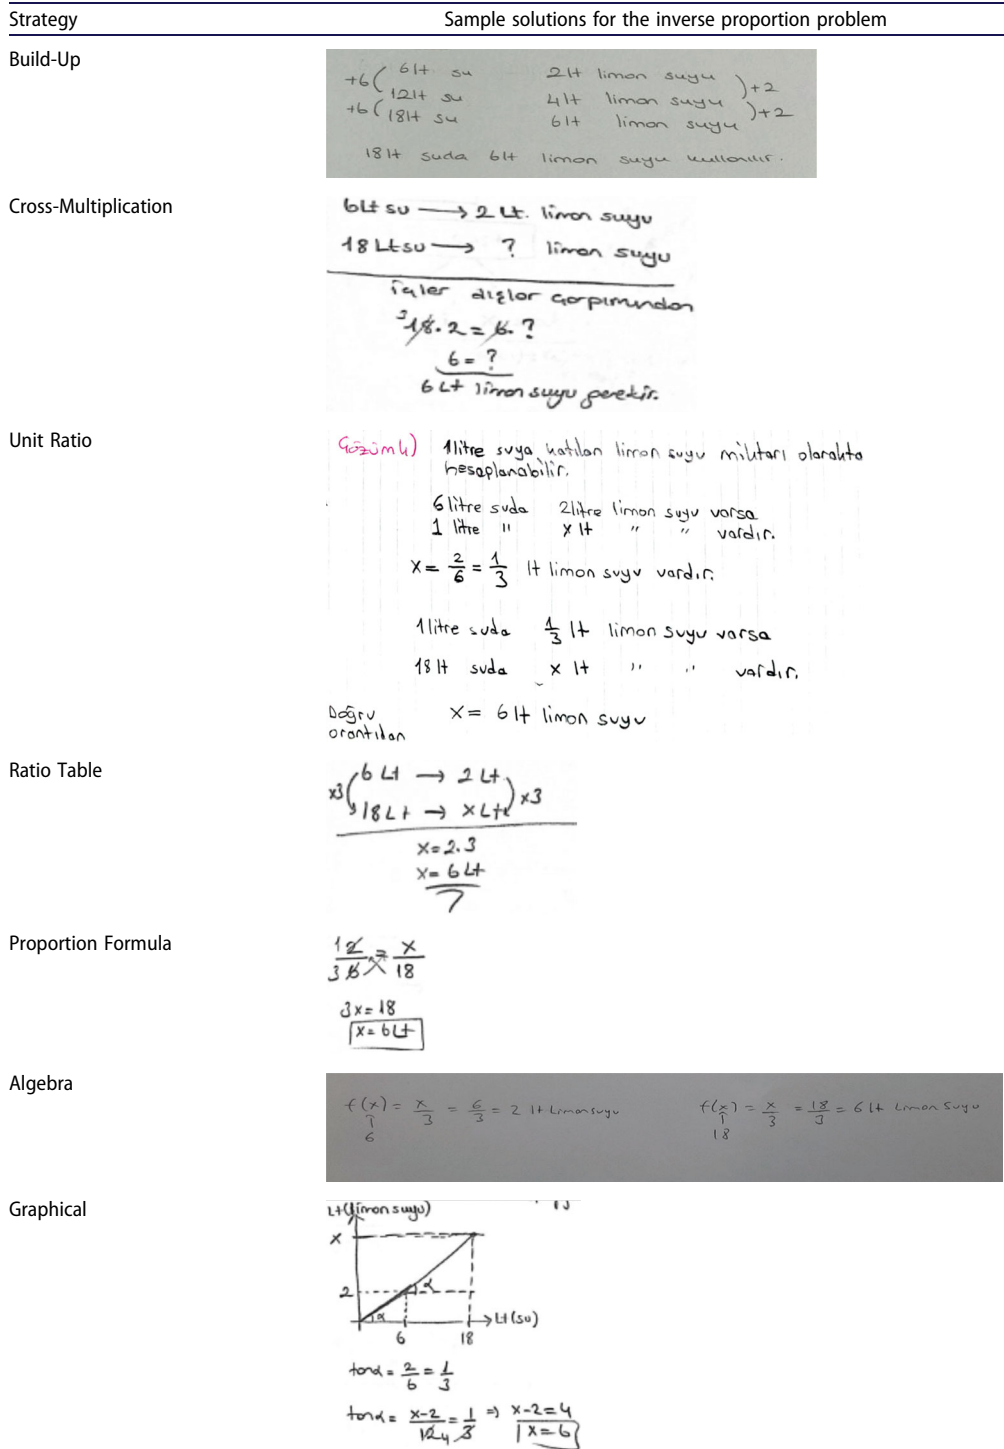 Strategy Sample solutions for the inverse proportion problem
Build-Up
+6 ( 6lt su 2lt limon suyu ) +2
12lt su 4lt limon suyu
+6 ( 18lt su 6lt limon suyu ) +2
18lt suda 6lt limon suyu kullanılır.
Cross-Multiplication
6Lt su → 2 Lt. limon suyu
18 Lt su → ? limon suyu
içler dışlar çarpımından
3 18. 2 = 6. ?
6 = ?
6 Lt limon suyu gerekir.
Unit Ratio
Çözüm 4) 1 litre suya katılan limon suyu miktarı olarakta
hesaplanabilir.
6 litre suda 2 litre limon suyu varsa
1 litre " x lt " " vardır.
x = 2/6 = 1/3 lt limon suyu vardır.
1 litre suda 1/3 lt limon suyu varsa
18 lt suda x lt " " vardır.
Doğru
orantıdan x = 6 lt limon suyu
Ratio Table
x3 ( 6 Lt → 2 Lt ) x3
18 Lt → x Lt
x = 2.3
x = 6 Lt
Proportion Formula
1 2 / 3 6 = x / 18
3x = 18
x = 6 Lt
Algebra
f(x) = x/3 = 6/3 = 2 lt Limon suyu f(x) = x/3 = 18/3 = 6 lt Limon suyu
6 18
Graphical
Lt (limon suyu)
x
2 α
α Lt (su)
6 18
tanα = 2/6 = 1/3
tanα = x-2 / 12 4 = 1/3 ⇒ x-2=4
x=6